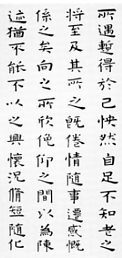 所遇蹔得於己怏然自足不知老之
將至及其所之既倦情隨事遷感慨
係之矣向之所欣俛仰之間以為陳
迹猶不能不以之興懷況脩短隨化